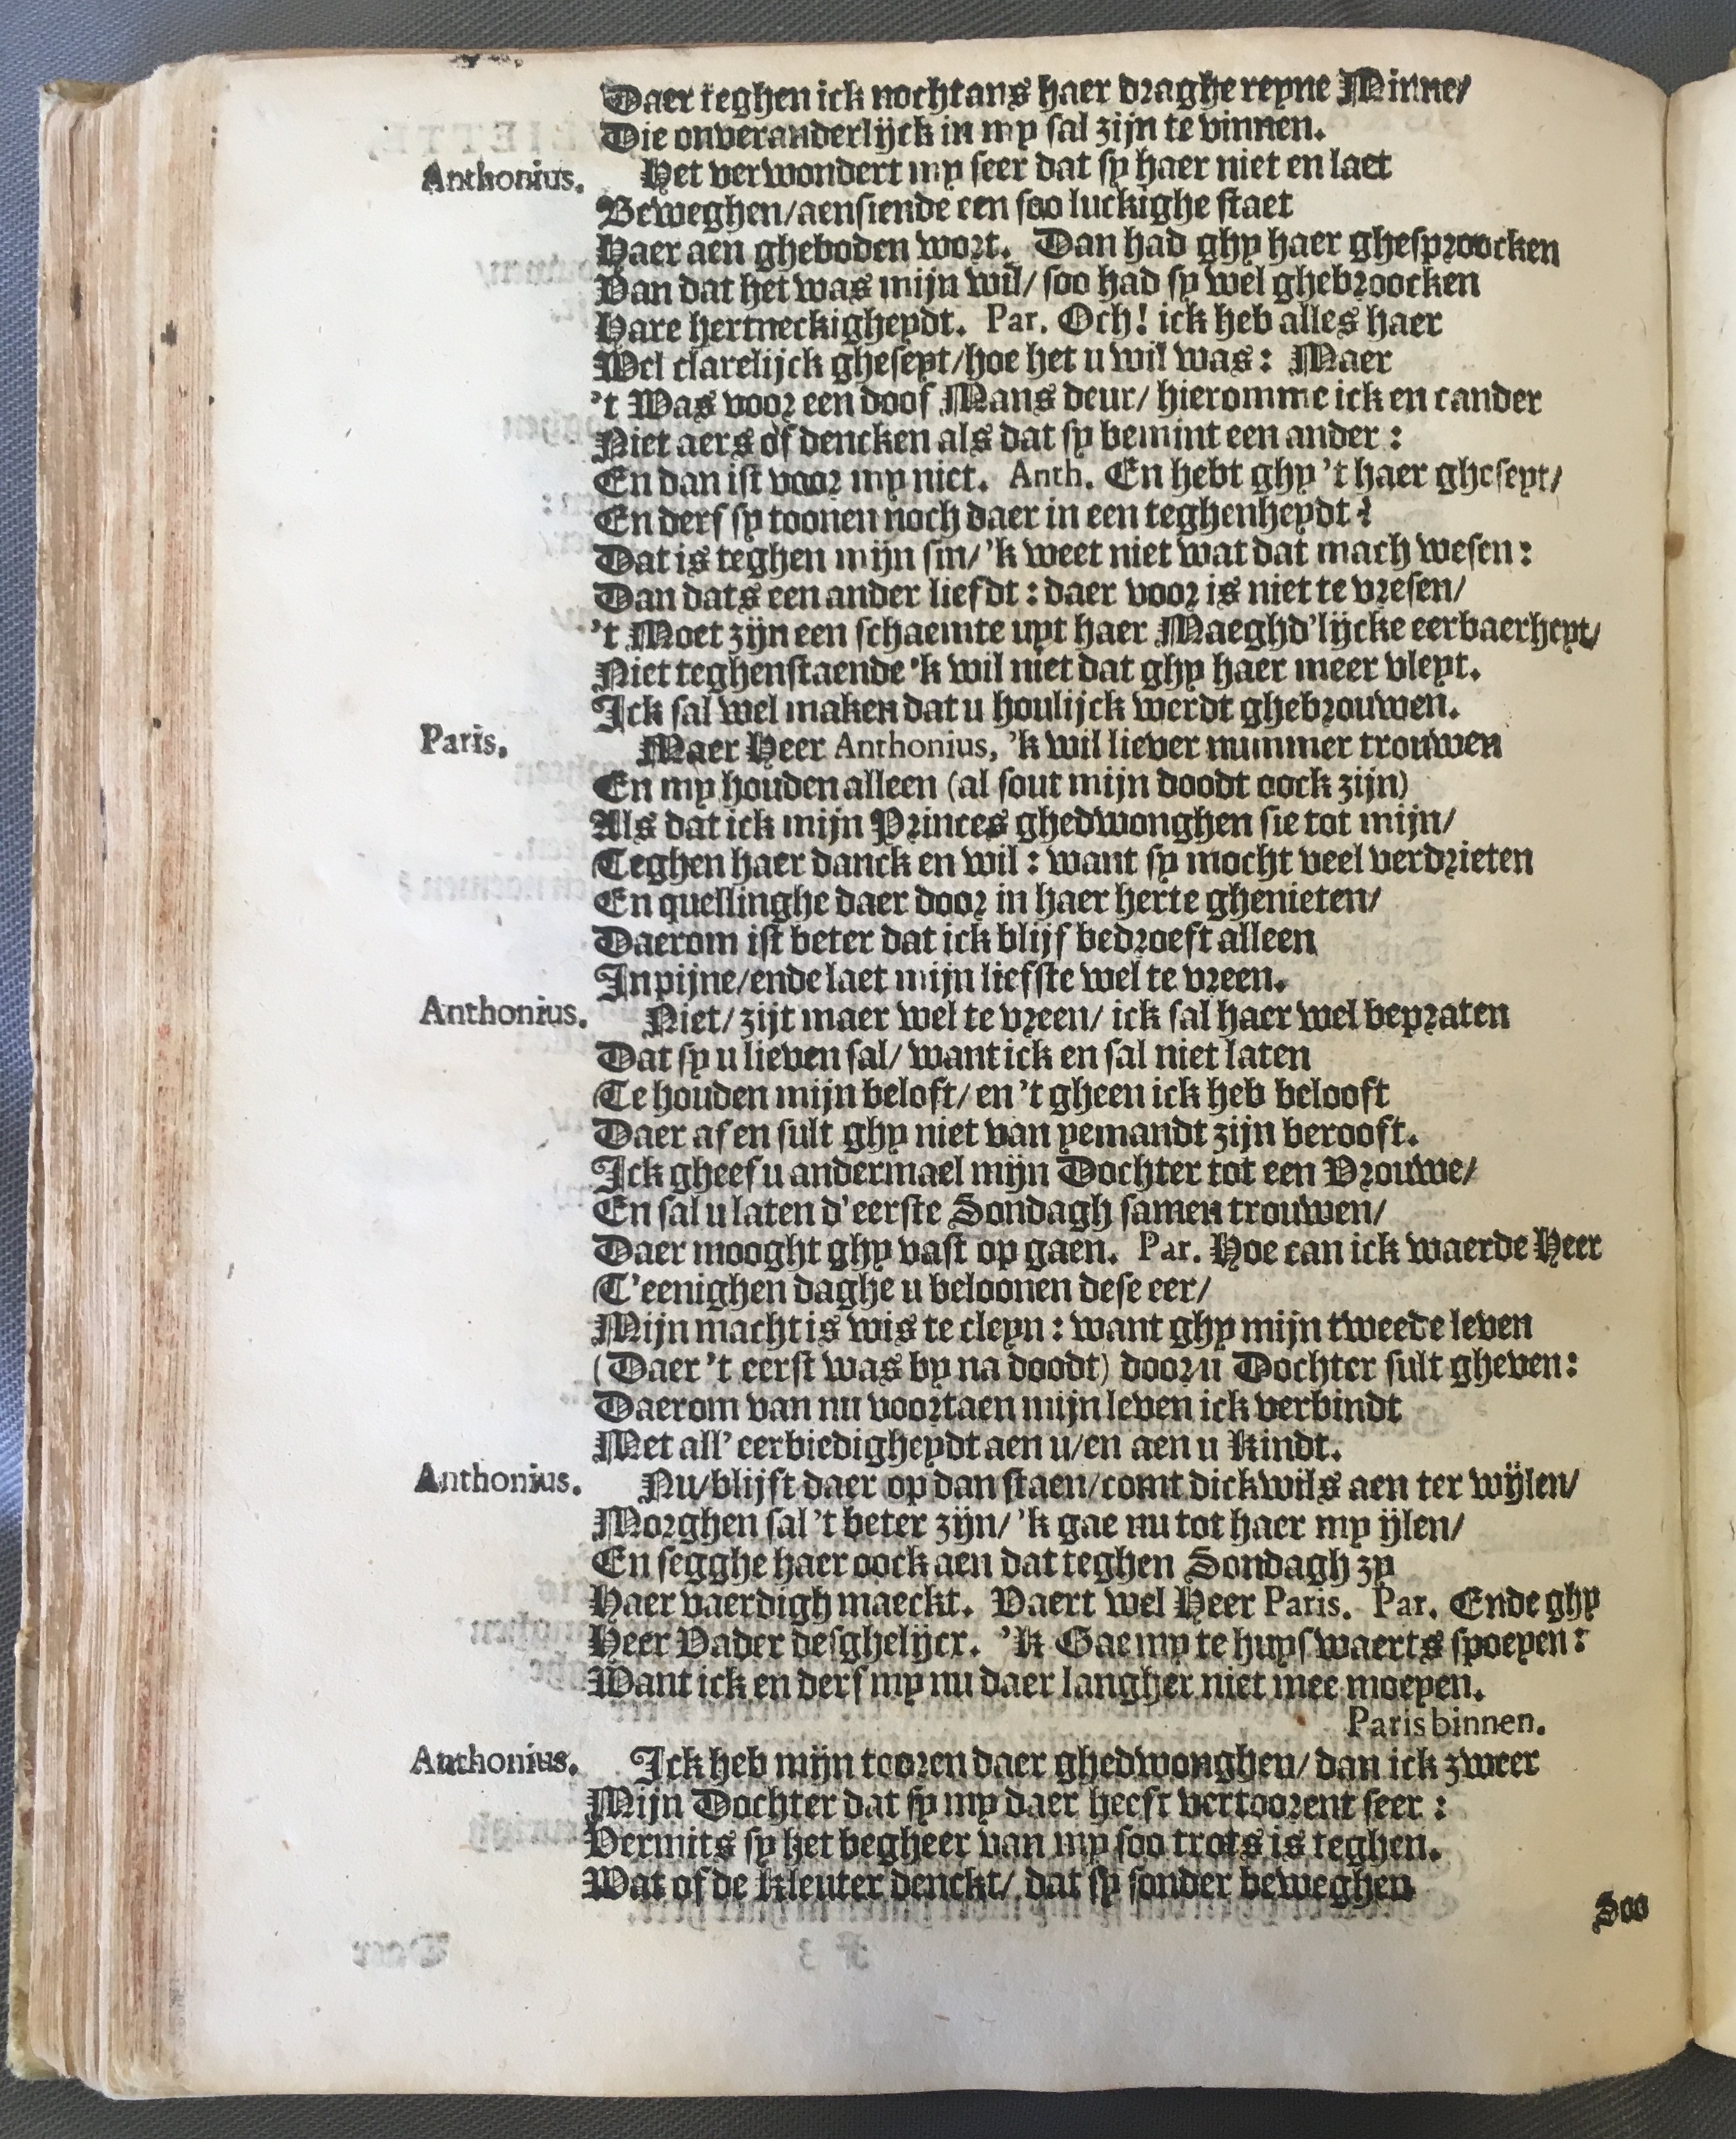 Daer teghen ick nochtans haer draghe reyne Minne/
Die onveranderlijck in my sal zijn te vinnen.
Anthonius. Het verwondert my seer dat sy haer niet en laet
Beweghen/aensiende een soo luckighe staet
Haer aen gheboden wort. Dan had ghy haer ghesproocken
Van dat het was mijn wil/ soo had sy wel ghebroocken
Hare hertneckigheydt. Par. Och! ick heb alles haer
Wel clarelijck gheseyt/hoe het u wil was: Maer
't Was voor een doof Mans deur/ hieromme ick en cander
Niet aers of dencken als dat sy bemint een ander:
En dan ist voor my niet. Anth. En hebt ghy 't haer gheseyt/
En derf sy toonen noch daer in een teghenheydt?
Dat is teghen mijn sin/ 'k weet niet wat dat mach wesen:
Dan dats een ander liefdt: daer voor is niet te vresen/
't Moet zijn een schaemte uyt haer Maeghd'lijcke eerbaerheyt/
Niet teghenstaende 'k wil niet dat ghy haer meer vleyt.
Ick sal wel maken dat u houlijck werdt ghebrouwen.
Paris. Maer Heer Anthonius, 'k wil liever nummer trouwen
En my houden alleen (al sout mijn doodt oock zijn)
Als dat ick mijn Princes ghedwonghen sie tot mijn/
Teghen haer danck en wil: want sy mocht veel verdrieten
En quellinghe daer door in haer herte ghenieten/
Daerom ist beter dat ick blijf bedroeft alleen
In pijne/ende laet mijn liefste wel te vreen.
Anthonius. Niet/ zijt maer wel te vreen/ ick sal haer wel bepraten
Dat sy u lieven sal/ want ick en sal niet laten
Te houden mijn beloft/ en 't gheen ick heb belooft
Daer af en sult ghy niet van yemandt zijn berooft.
Ick gheef u andermael mijn Dochter tot een Vrouwe/
En sal u laten d'eerste Sondagh samen trouwen/
Daer mooght ghy vast op gaen. Par. Hoe can ick waerde Heer
T'eenighen daghe u beloonen dese eer/
Mijn macht is wis te cleyn: want ghy mijn tweede leven
(Daer 't eerst was by na doodt) door u Dochter sult gheven:
Daerom van nu voortaen mijn leven ick verbindt
Met all' eerbiedigheydt aen u/en aen u Kindt.
Anthonius. Nu/blijft daer op dan staen/comt dickwils aen ter wijlen/
Morghen sal 't beter zijn/ 'k gae nu tot haer my ijlen/
En segghe haer oock aen dat teghen Sondagh zy
Haer vaerdigh maeckt. Vaert wel Heer Paris. Par. Ende ghy
Heer Vader desghelijcx. 'k Gae my te huyswaerts spoeyen:
Want ick en derf my nu daer langher niet mee moeyen.
Paris binnen.
Anthonius. Ick heb mijn tooren daer ghedwonghen/ dan ick zweer
Mijn Dochter dat sy my daer heeft vertoorent seer:
Vermits sy het begheer van my soo trots is teghen.
Wat of de Kleuter denckt/ dat sy sonder beweghen
Soo